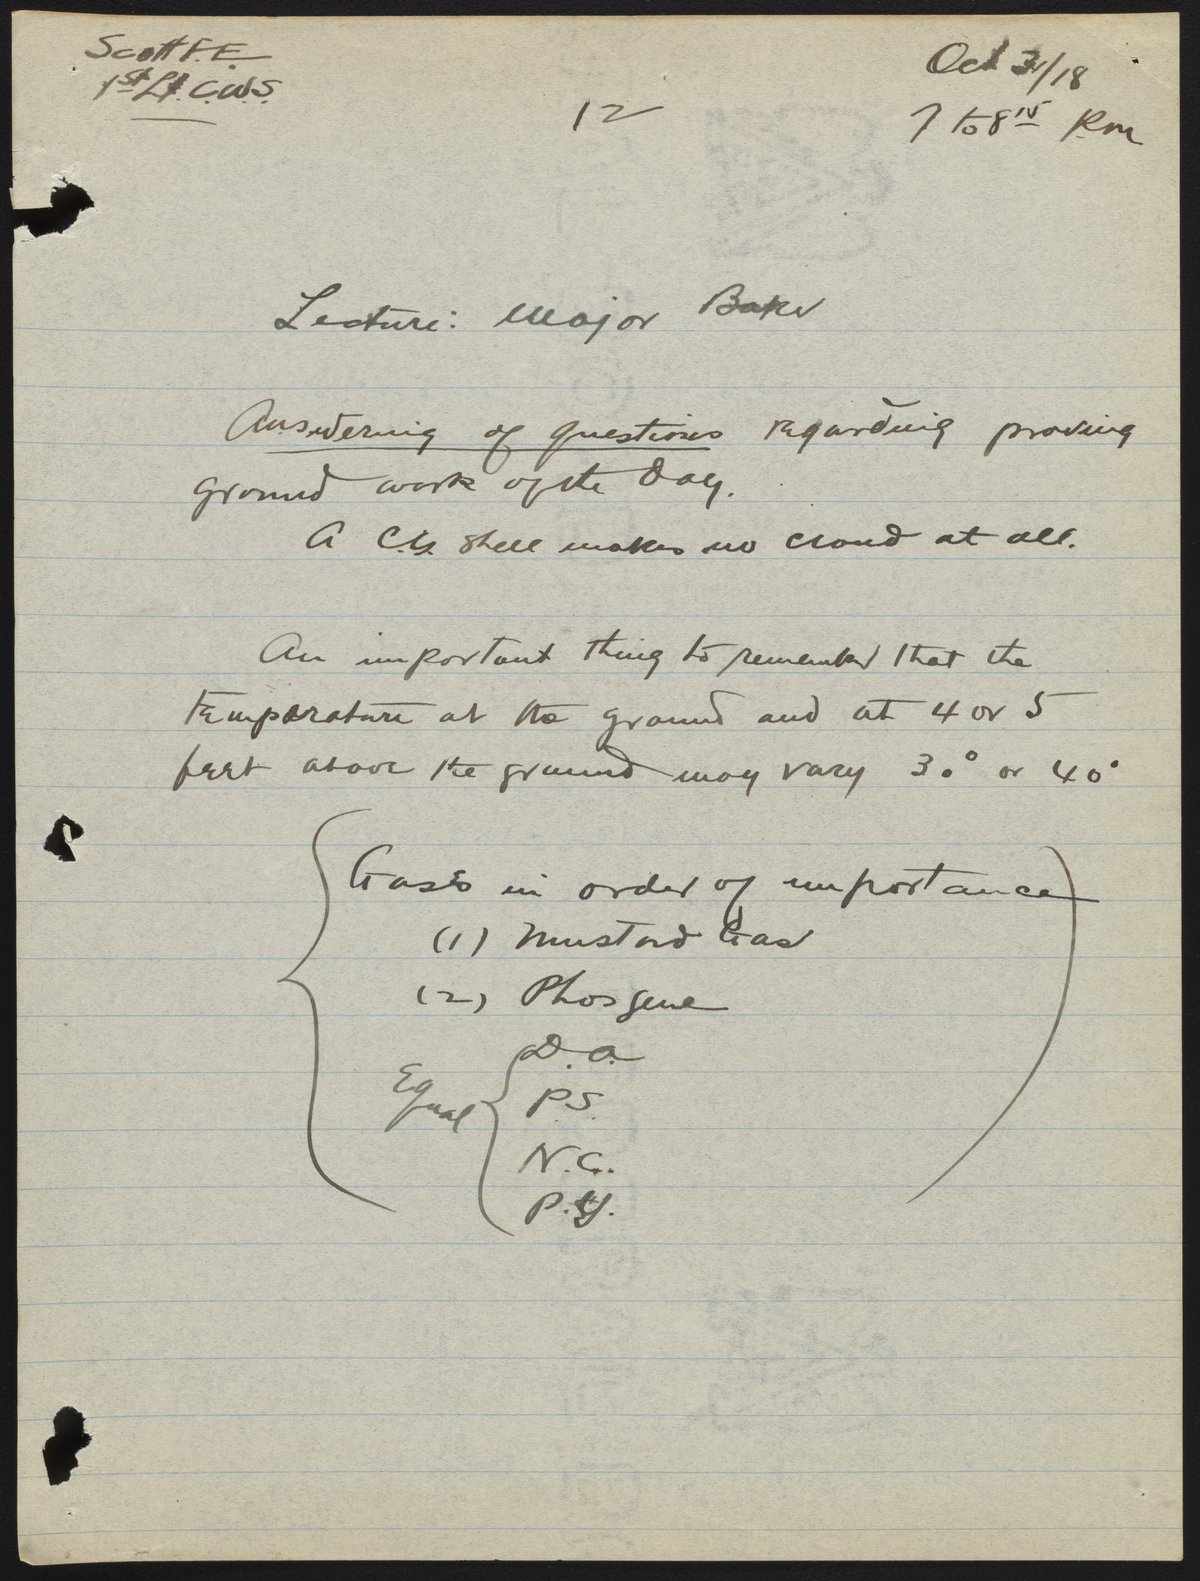 Scott F. E.
1st Lt. C.W.S.
Oct /18
7 to 8 15 P.m
12
Lecture: Major Baker
Answering of questions regarding proving
ground work of the day.
A C.G. shell makes no cloud at all.
An important thing to remember that the
temperature at the ground and at 4 or 5
feet above the ground may vary 30° or 40°
Gases in order of importance
(1) Mustard Gas
(2) Phosgene
Equal
D.A.
P.S.
N.C.
P.G.